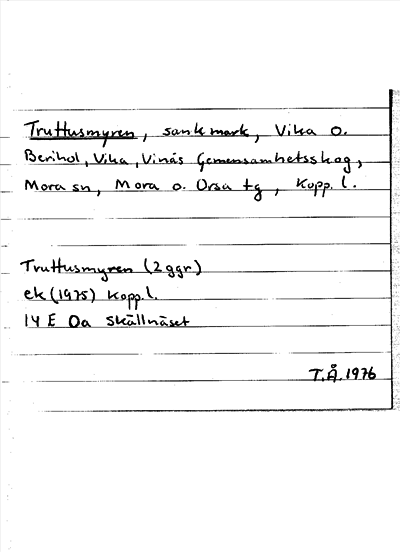 Truttusmyren, sankmark, Vika o.
Berihol, Vika, Vinäs Gemensamhetsskog,
Mora sn, Mora o. Orsa tg, Kopp. l.
Truttusmyren (2 ggr)
ek (1975) Kopp. l.
14 E 0a Skällnäset
T.Å. 1976